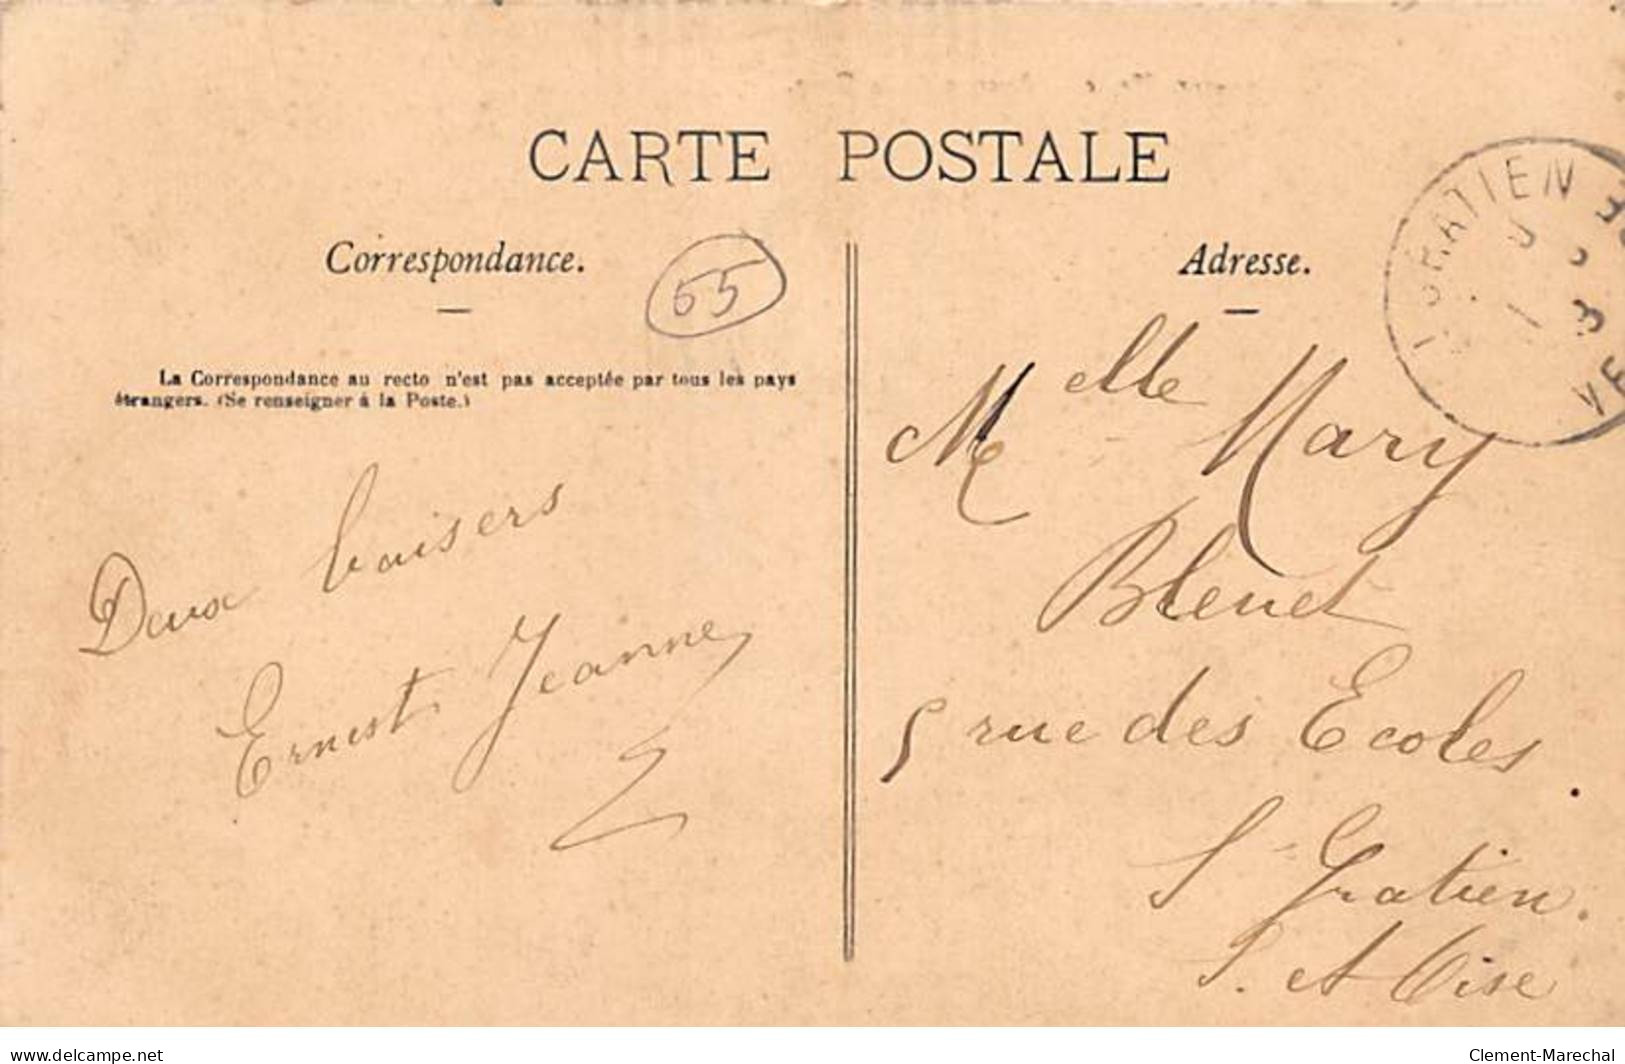 CARTE POSTALE
Correspondance.
55
La Correspondance au recto n'est pas acceptée par tous les pays
étrangers. (Se renseigner à la Poste.)
Deux baisers
Ernest Jeanne
Adresse.
GRATIEN
Melle Mary
Bleuet
5 rue des Ecoles.
St Gratien.
S. et Oise
delcampe.net
Clement-Marechal